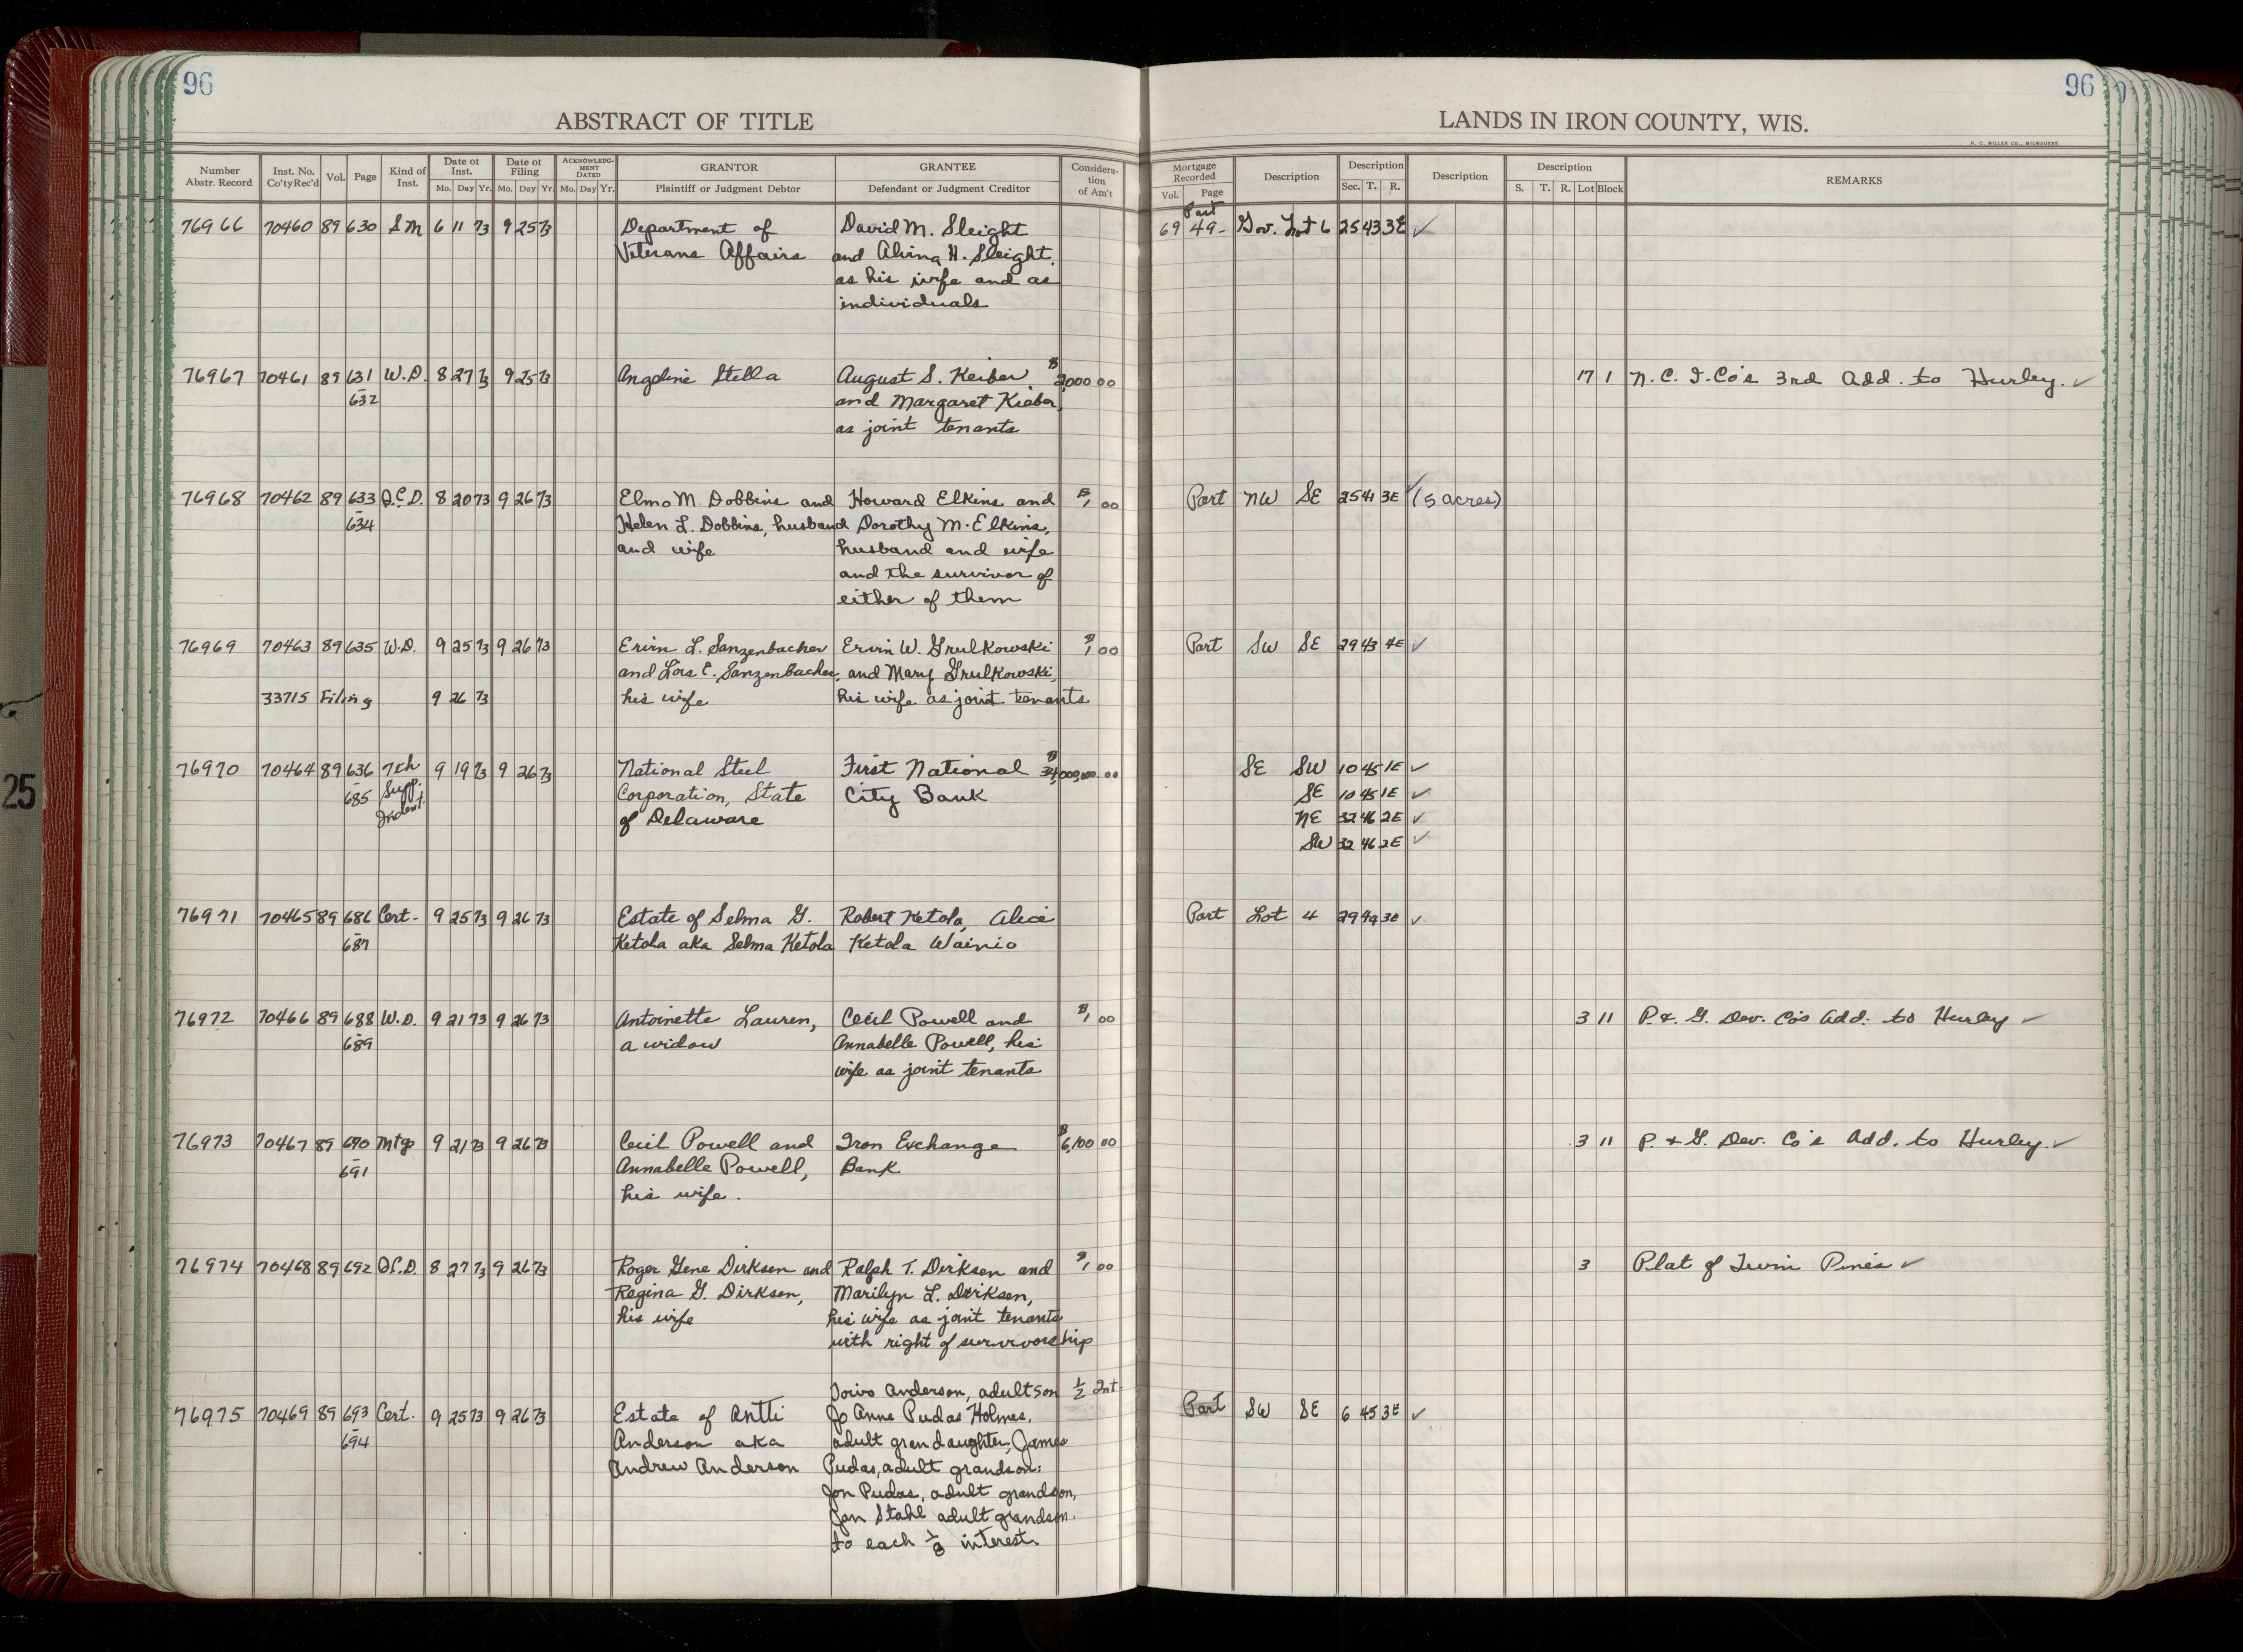 96
96
ABSTRACT OF TITLE
LANDS IN IRON COUNTY, WIS.
H. C. MILLER CO., MILWAUKEE
Number Abstr. Record | Inst. No. Co'ty Rec'd | Vol. | Page | Kind of Inst. | Date of Inst. Mo. Day Yr. | Date of Filing Mo. Day Yr. | ACKNOWLEDGMENT DATED Mo. Day Yr. | GRANTOR Plaintiff or Judgment Debtor | GRANTEE Defendant or Judgment Creditor | Consideration of Am't | Mortgage Recorded Vol. Page | Description | Description Sec. T. R. | Description | Description S. T. R. Lot Block | REMARKS
76966 70460 89 630 SM 6 11 73 9 25 73 Department of David M. Sleight 69 49- Part Gov. Lot 6 25 43 3E ✓
Veterans Affairs and Alvina H. Sleight,
as his wife and as
individuals
76967 70461 89 631 W.D. 8 27 73 9 25 73 Angeline Stella August S. Keiber $2,000 00 17 1 N.C.I. Co's 3rd Add. to Hurley. ✓
632 and Margaret Kieber,
as joint tenants
76968 70462 89 633 Q.C.D. 8 20 73 9 26 73 Elmo M. Dobbins and Howard Elkins and $1 00 Part NW SE 25 41 3E ✓ (5 acres)
634 Helen L. Dobbins, husband Dorothy M. Elkins,
and wife husband and wife
and the survivor of
either of them
76969 70463 89 635 W.D. 9 25 73 9 26 73 Ervin L. Sanzenbacher Ervin W. Grulkowski $1 00 Part SW SE 29 43 4E ✓
and Lois E. Sanzenbacher, and Mary Grulkowski,
33715 Filing 9 26 73 his wife his wife as joint tenants
76970 70464 89 636 7th 9 19 73 9 26 73 National Steel First National $34,000,000.00 SE SW 10 45 1E ✓
685 Supp. Indent. Corporation, State City Bank SE 10 45 1E ✓
of Delaware NE 32 46 2E ✓
SW 32 46 2E ✓
76971 70465 89 686 Cert- 9 25 73 9 26 73 Estate of Selma G. Robert Ketola, Alice Part Lot 4 29 44 3E ✓
687 Ketola aka Selma Ketola Ketola Wainio
76972 70466 89 688 W.D. 9 21 73 9 26 73 Antoinette Lauren, Cecil Powell and $1 00 3 11 P. & G. Dev. Co's Add. to Hurley ✓
689 a widow Annabelle Powell, his
wife as joint tenants
76973 70467 89 690 Mtge 9 21 73 9 26 73 Cecil Powell and Iron Exchange $6,100 00 3 11 P. & G. Dev. Co's Add. to Hurley. ✓
691 Annabelle Powell, Bank
his wife.
76974 70468 89 692 Q.C.D. 8 27 73 9 26 73 Roger Gene Dirksen and Ralph T. Dirksen and $1 00 3 Plat of Twin Pines ✓
Regina G. Dirksen, Marilyn L. Dirksen,
his wife his wife as joint tenants
with right of survivorship
Toivo Anderson, adult son 1/2 Int
76975 70469 89 693 Cert. 9 25 73 9 26 73 Estate of Antti Jo Anne Pudas Holmes, Part SW SE 6 45 3E ✓
694 Anderson aka adult grandaughter, James
Andrew Anderson Pudas, adult grandson;
Jon Pudas, adult grandson,
Jan Stahl adult grandson.
to each 1/8 interest
25